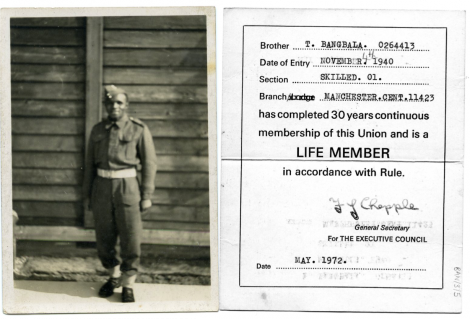 Brother T. BANGBALA. 0264413
Date of Entry NOVEMBER. 6th 1940
Section SKILLED. 01.
Branch MANCHESTER.CENT.11423
has completed 30 years continuous
membership of this Union and is a
LIFE MEMBER
in accordance with Rule.
General Secretary
For THE EXECUTIVE COUNCIL
Date MAY. 1972.